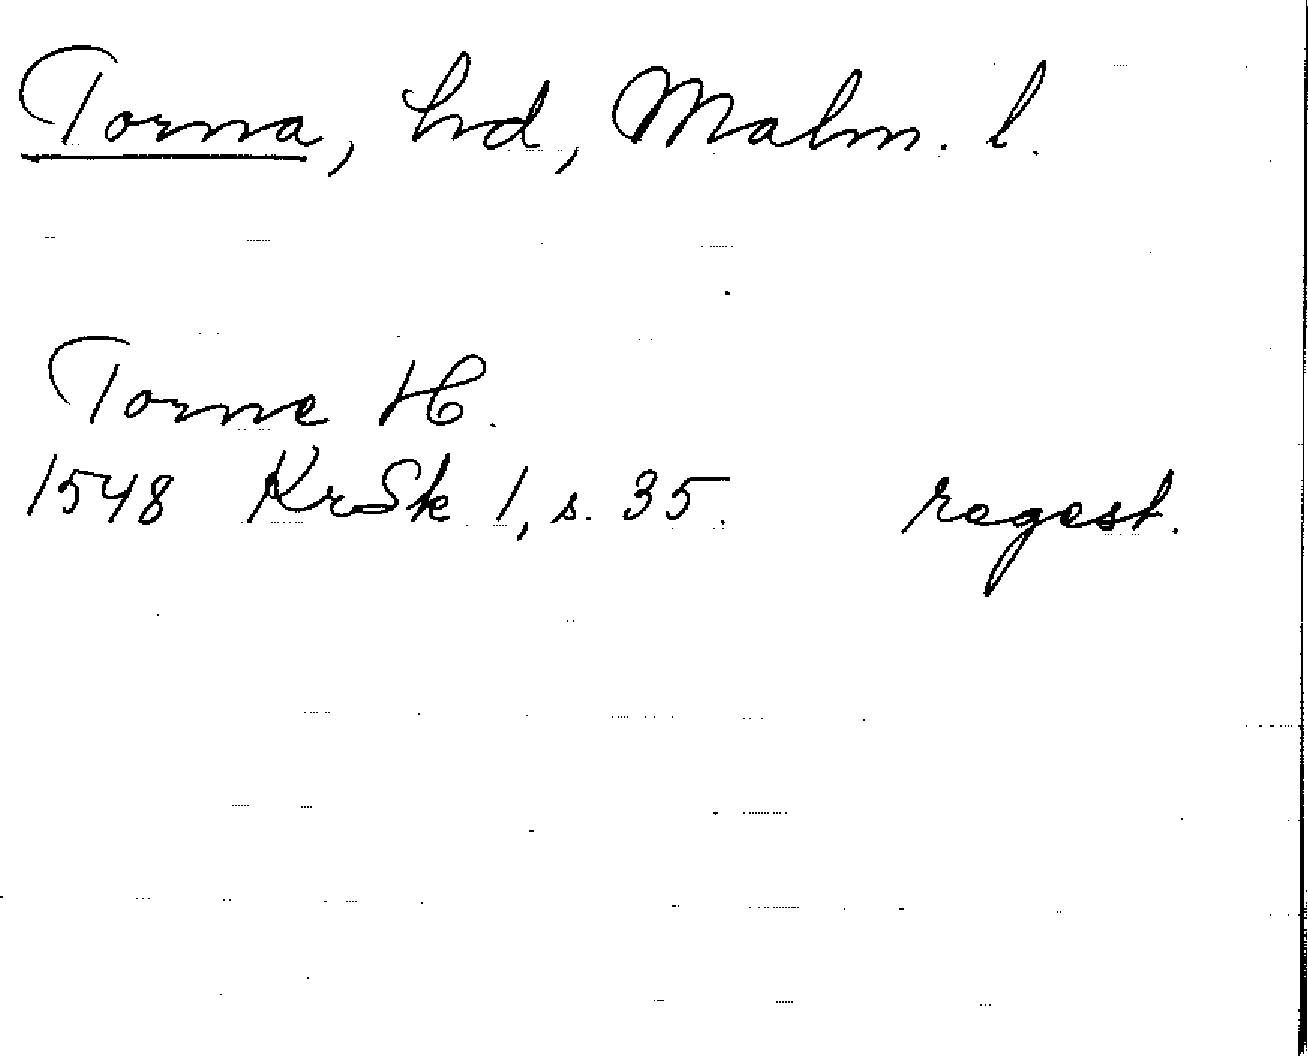 Torna, hd, Malm. l.
Torne H.
1548 KrSk 1, s. 35. regest.